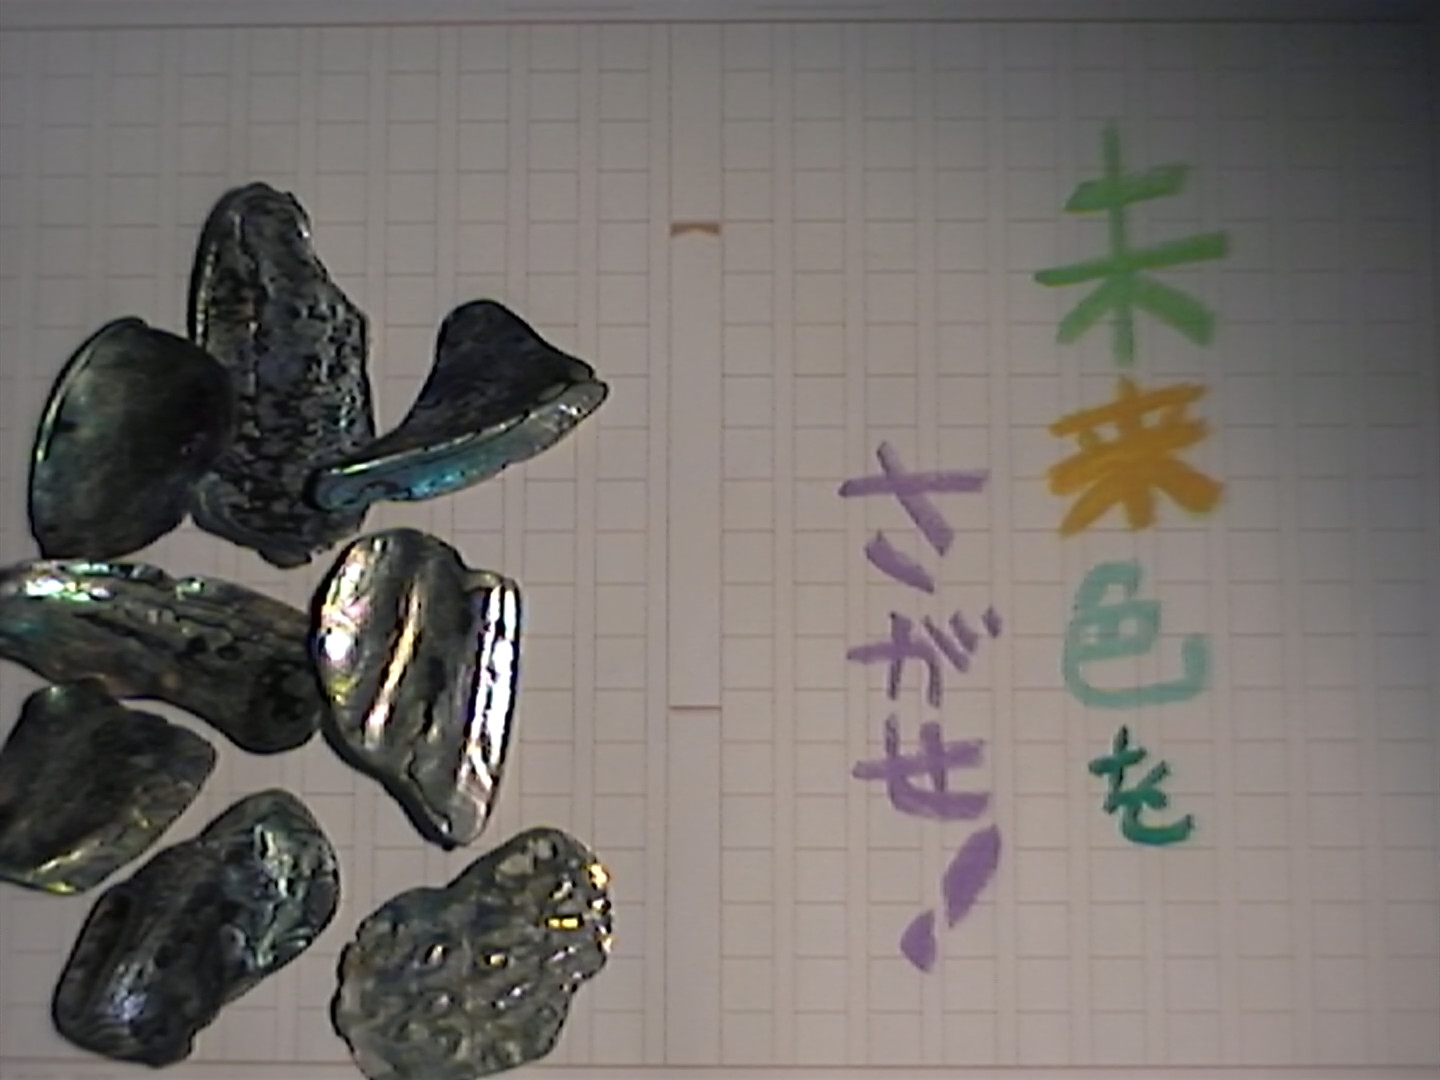 未来色を
さがせ!